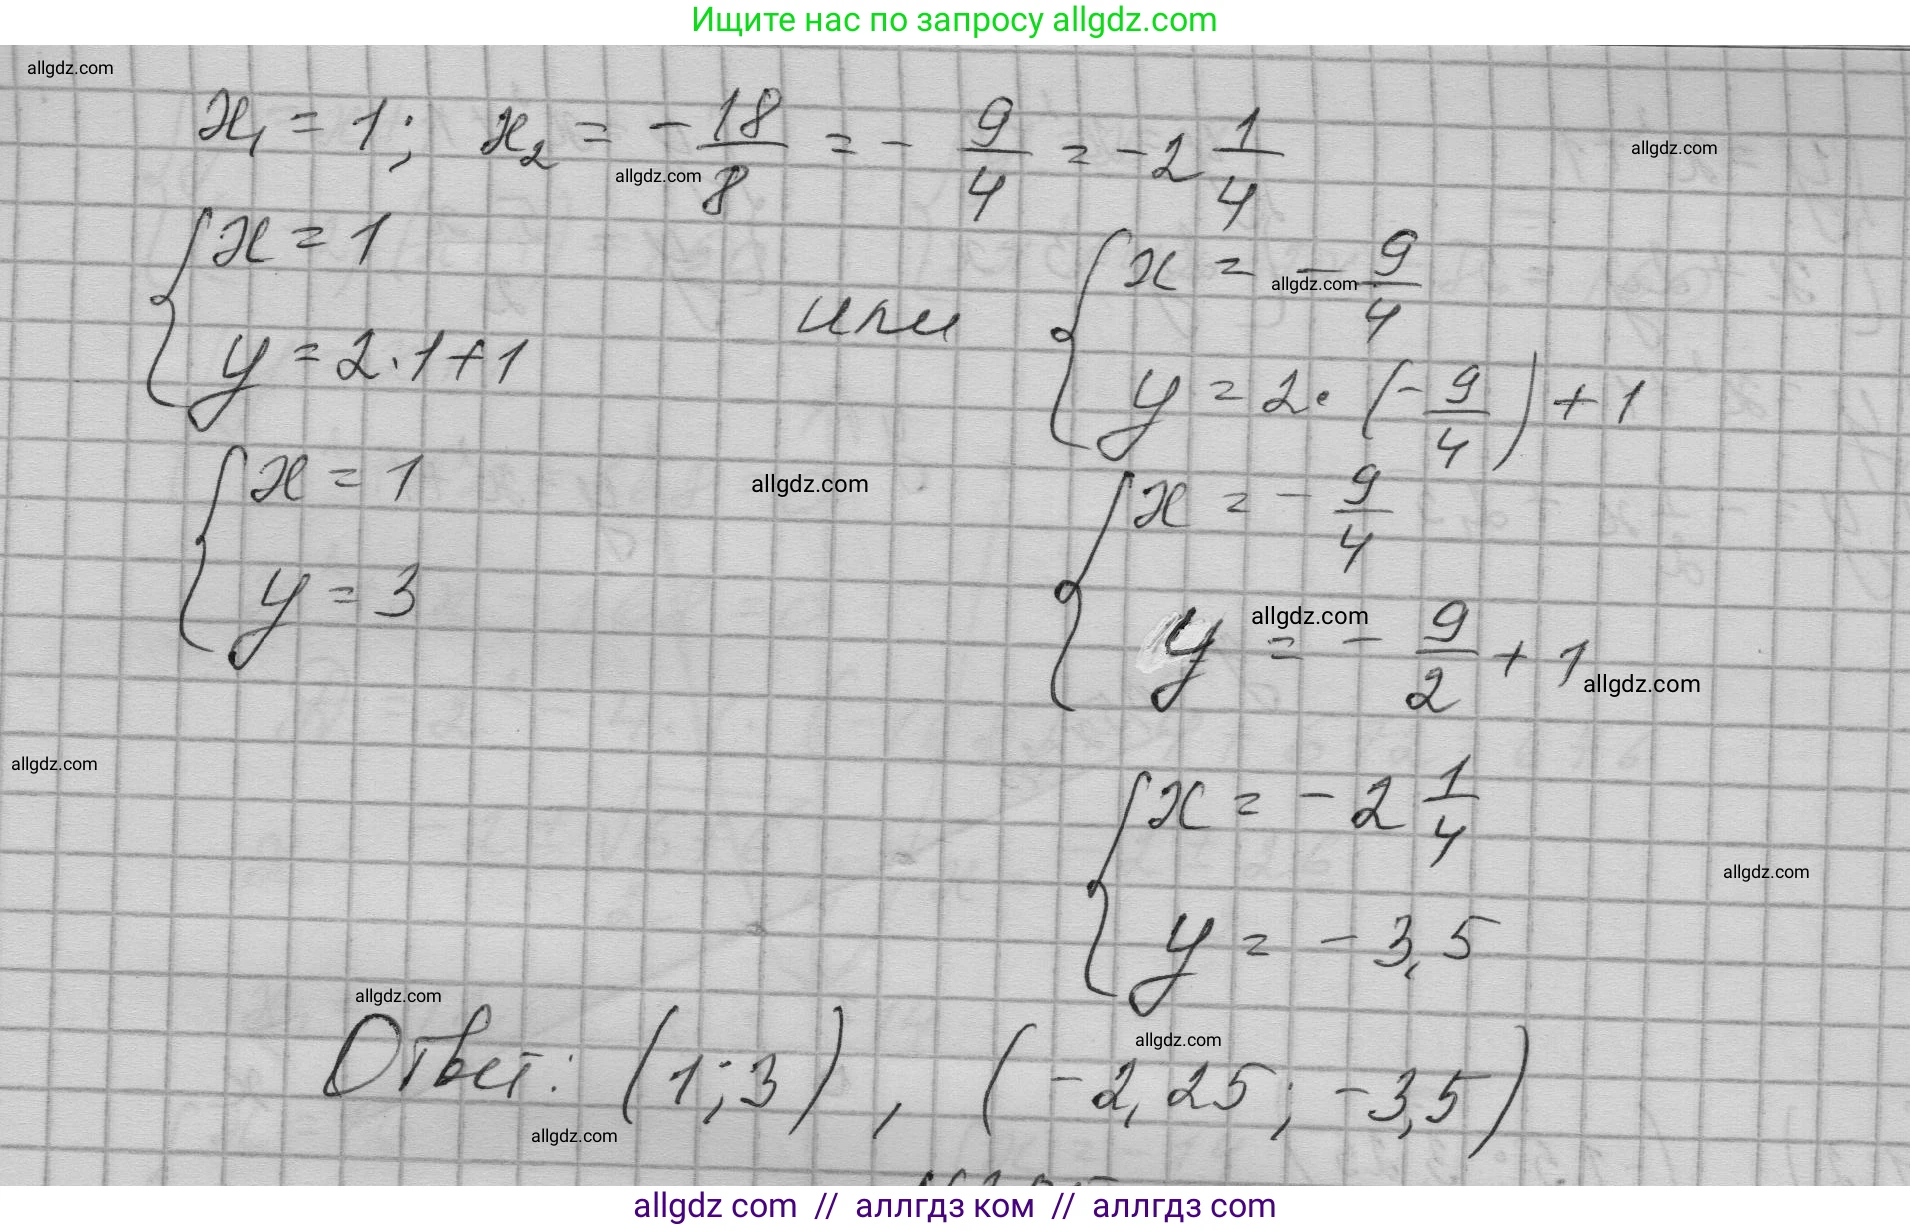 Ищите нас по запросу allgdz.com
allgdz.com
x₁ = 1; x₂ = -18/8 = -9/4 = -2 1/4
allgdz.com
allgdz.com
{ x = 1
y = 2·1+1
или
{ x = -9/4
y = 2·(-9/4)+1
allgdz.com
{ x = 1
y = 3
allgdz.com
{ x = -9/4
y = -9/2 + 1
allgdz.com
allgdz.com
allgdz.com
{ x = -2 1/4
y = -3,5
allgdz.com
allgdz.com
allgdz.com
Ответ: (1;3), (-2,25; -3,5)
allgdz.com
allgdz com // аллгдз ком // аллгдз com